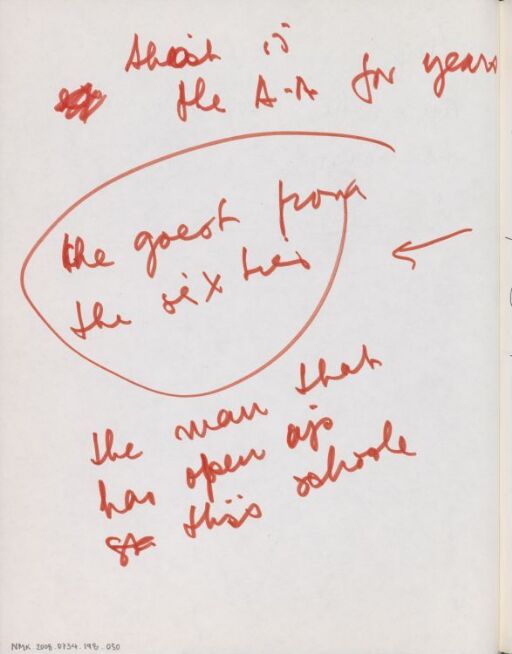 that is
the A.A for years
the goest from
the sixties
the man that
has open up
this schoole
NMK 2008.0734.198.050